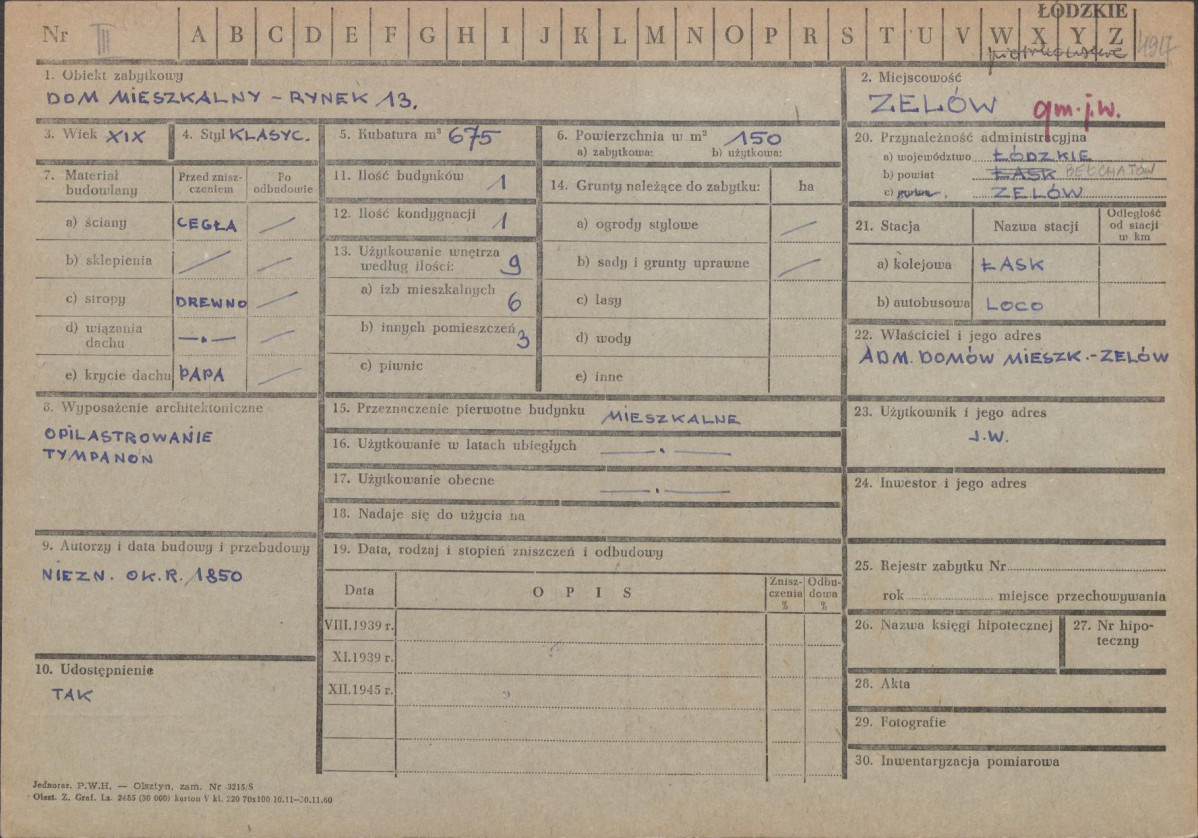 ŁÓDZKIE
Nr III A B C D E F G H I J K L M N O P R S T U V W X Y Z
piotrkowskie
1. Obiekt zabytkowy
DOM MIESZKALNY – RYNEK 13.
2. Miejscowość
ZELÓW gm. j.w.
3. Wiek XIX
4. Styl KLASYC.
5. Kubatura m³ 675
6. Powierzchnia w m² 150
a) zabytkowa: b) użytkowa:
7. Materiał budowlany
Przed zniszczeniem
Po odbudowie
a) ściany CEGŁA /
b) sklepienia / /
c) stropy DREWNO /
d) wiązania dachu —.— /
e) krycie dachu PAPA /
8. Wyposażenie architektoniczne
OPILASTROWANIE
TYMPANON
9. Autorzy i data budowy i przebudowy
NIEZN. OK. R. 1850
10. Udostępnienie
TAK
11. Ilość budynków 1
12. Ilość kondygnacji 1
13. Użytkowanie wnętrza według ilości: 9
a) izb mieszkalnych 6
b) innych pomieszczeń 3
c) piwnic
14. Grunty należące do zabytku: ha
a) ogrody stylowe /
b) sady i grunty uprawne /
c) lasy
d) wody
e) inne
15. Przeznaczenie pierwotne budynku MIESZKALNE
16. Użytkowanie w latach ubiegłych —.—
17. Użytkowanie obecne —.—
18. Nadaje się do użycia na
19. Data, rodzaj i stopień zniszczeń i odbudowy
Data OPIS Zniszczenia % Odbudowa %
VIII.1939 r.
XI.1939 r.
XII.1945 r.
20. Przynależność administracyjna
a) województwo ŁÓDZKIE
b) powiat ŁASK BEŁCHATÓW
c) gmina ZELÓW
21. Stacja Nazwa stacji Odległość od stacji w km
a) kolejowa ŁASK
b) autobusowa LOCO
22. Właściciel i jego adres
ADM. DOMÓW MIESZK. - ZELÓW
23. Użytkownik i jego adres
J.W.
24. Inwestor i jego adres
25. Rejestr zabytku Nr
rok miejsce przechowywania
26. Nazwa księgi hipotecznej
27. Nr hipoteczny
28. Akta
29. Fotografie
30. Inwentaryzacja pomiarowa
Jednoraz. P.W.H. — Olsztyn, zam. Nr 3215/S
Olszt. Z. Graf. Lz. 2485 (30 000) karton V kl. 220 70x100 10.11—30.11.60